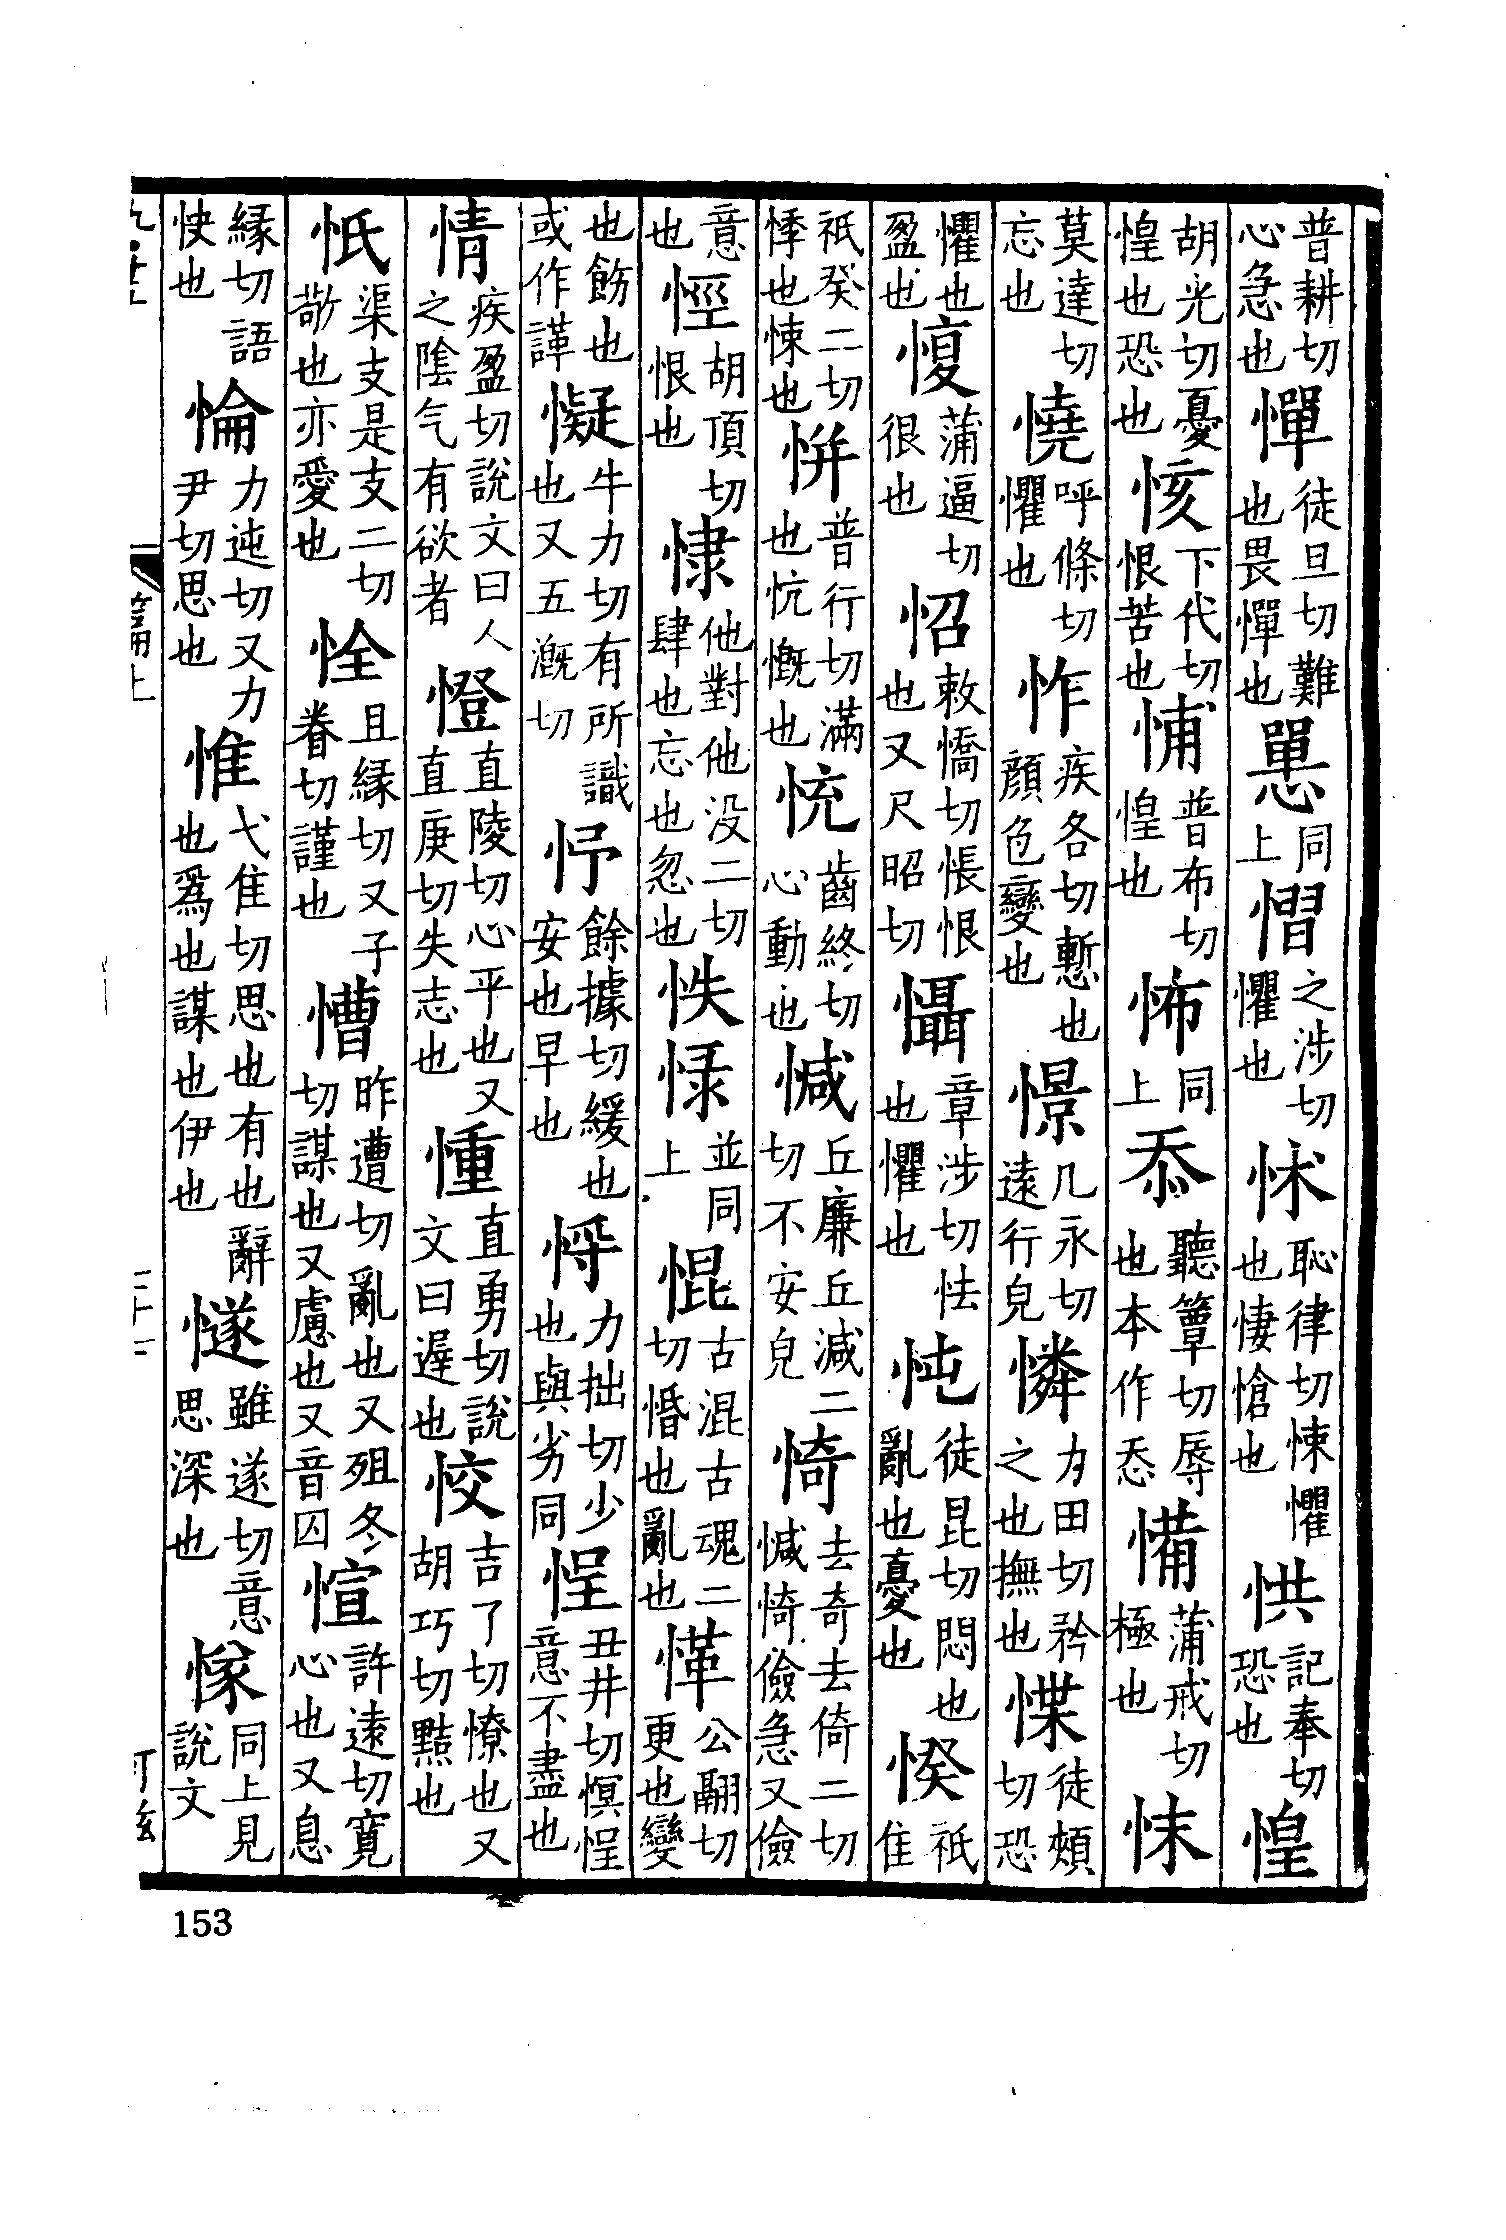 普耕切心急也憚徒旦切難也畏憚也㥨同上慴之涉切懼也怵恥律切悚懼也悽愴也㤨記奉切恐也惶
胡光切憂惶也恐也㤥下代切恨苦也悑普布切惶也怖同上忝聽簟切辱也本作㤁憊蒲戒切極也怽
莫達切忘也憢呼條切懼也怍疾各切慙也顏色變也憬几永切遠行皃憐力田切矜之也撫也惵徒頰切恐
懼也盈也愎蒲逼切很也怊敕憍切悵恨也又尺昭切懾章涉切怯也懼也忳徒昆切悶也亂也憂也㥍祇隹
祇癸二切悸也悚也恲普行切滿也忼慨也㤝齒終切心動也㦑丘廉丘減二切不安皃㥓去奇去倚二切㦑㥓儉急又儉
意也悙胡頂切恨也㥆他對他没二切肆也忘也忽也怢㥆並同上惃古混古魂二切惛也亂也愅公翮切更也變
也飭也或作諽懝牛力切有所識也又五漑切忬餘據切緩也安也早也㤘力拙切少也與劣同悜丑井切㥶悜意不盡也
情疾盈切說文曰人之陰气有欲者憕直陵切心平也又直庚切失志也㣫直勇切說文曰遲也恔吉了切憭也又胡巧切黠也
忯渠支是支二切敬也亦愛也恮且緣切又子眷切謹也慒昨遭切亂也又殂冬切謀也又慮也又音囚愃許遠切寬心也又息
緣切語快也惀力迍切又力尹切思也惟弋隹切思也有也辭也爲也謀也伊也㥞雖遂切意思深也㒸同上見說文
篇上
二十一
153